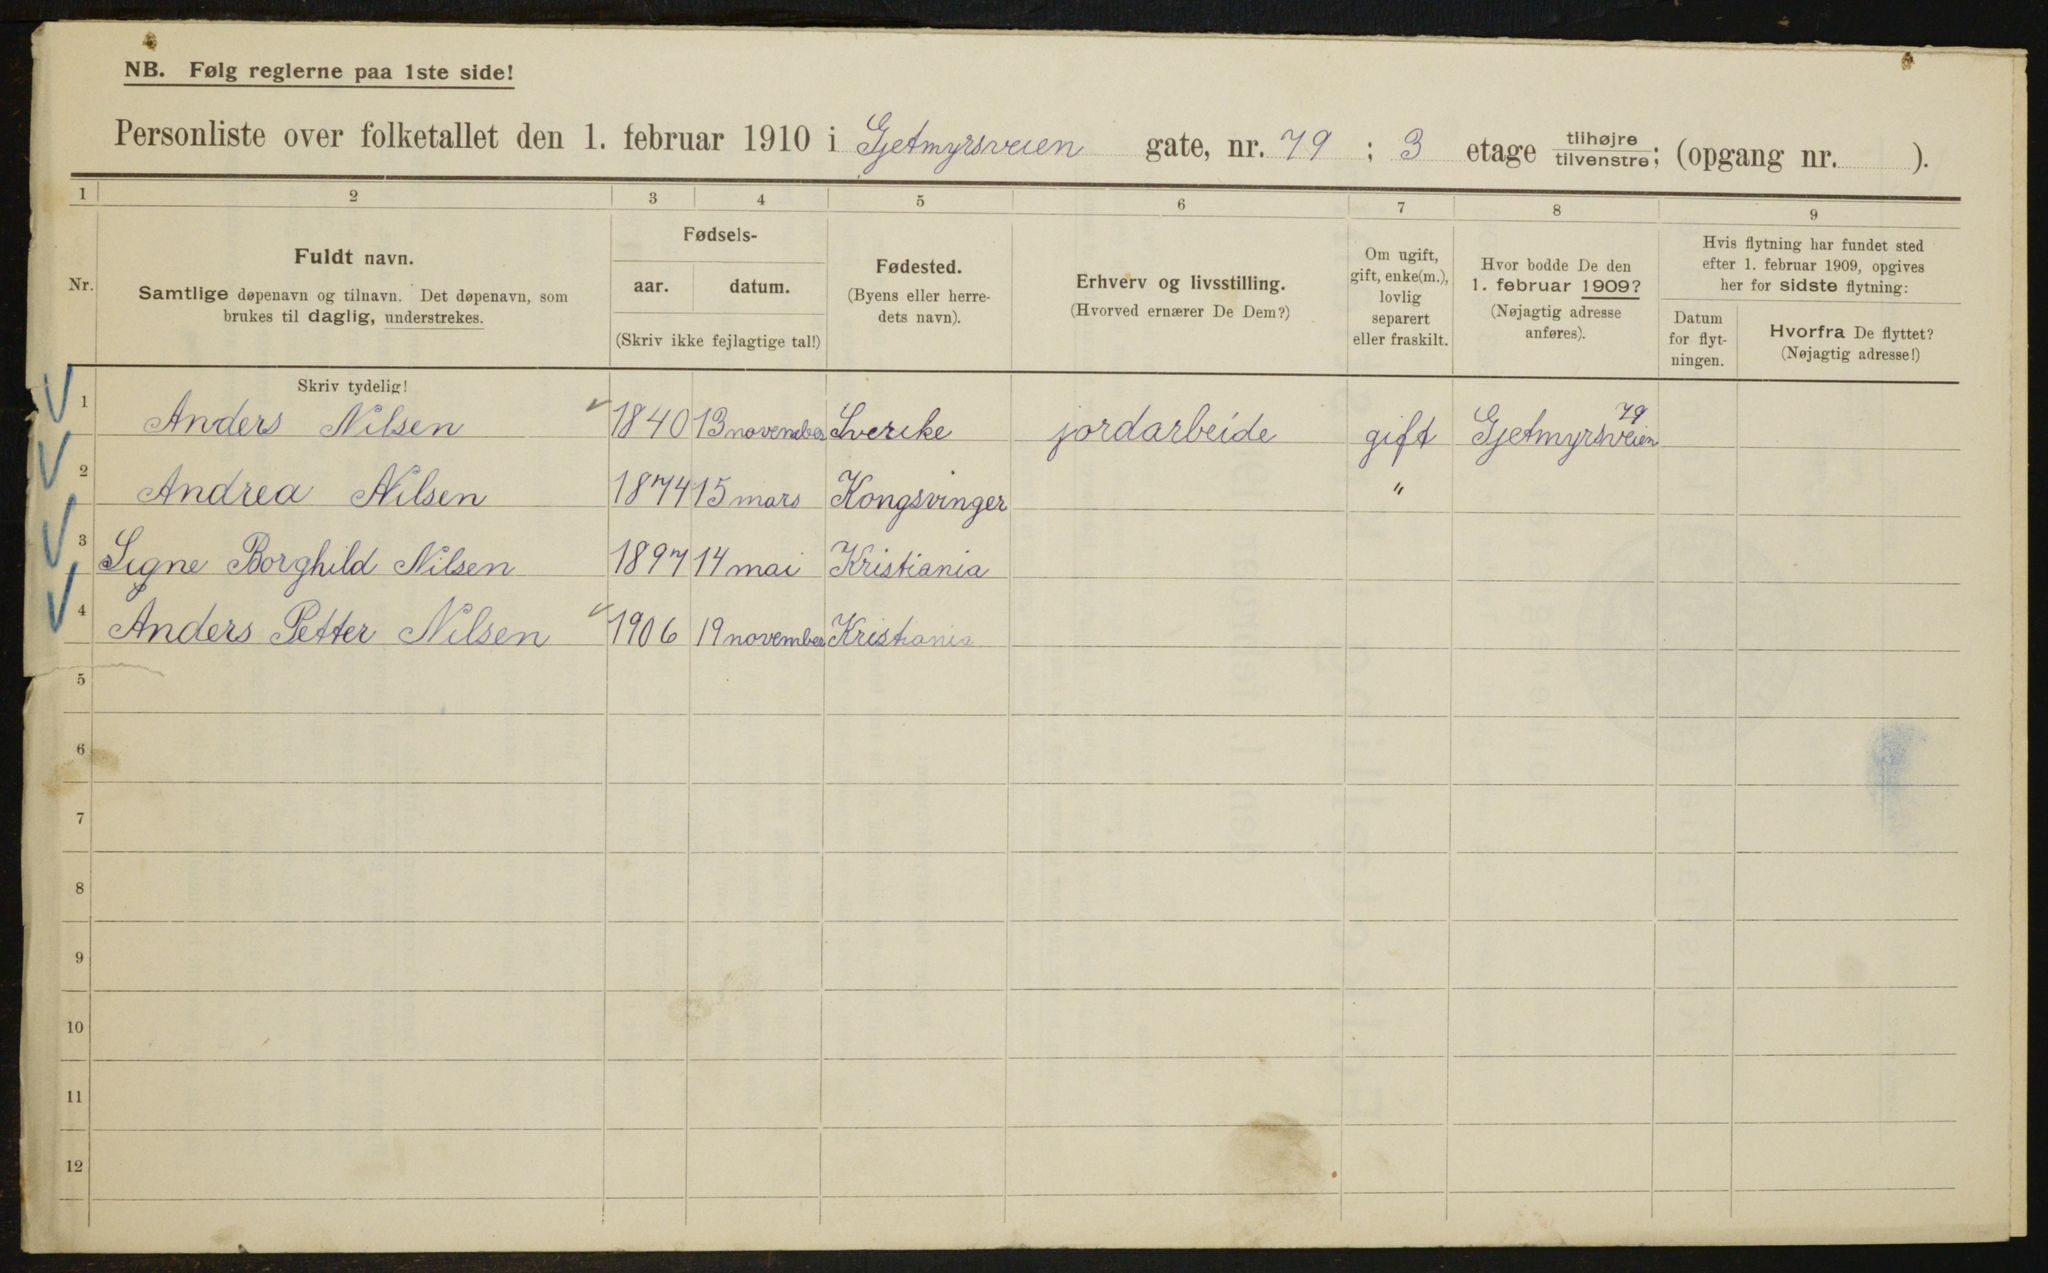 NB. Følg reglerne paa 1ste side!
Personliste over folketallet den 1. februar 1910 i Gjetmyrsveien gate, nr. 79 ; 3 etage tilhøjre tilvenstre; (opgang nr. ).
1 2 3 4 5 6 7 8 9
Nr.
Fuldt navn.
Samtlige døpenavn og tilnavn. Det døpenavn, som
brukes til daglig, understrekes.
Fødsels-
aar. datum.
(Skriv ikke fejlagtige tal!)
Fødested.
(Byens eller herre-
dets navn).
Erhverv og livsstilling.
(Hvorved ernærer De Dem?)
Om ugift,
gift, enke(m.),
lovlig
separert
eller fraskilt.
Hvor bodde De den
1. februar 1909?
(Nøjagtig adresse
anføres).
Hvis flytning har fundet sted
efter 1. februar 1909, opgives
her for sidste flytning:
Datum
for flyt-
ningen.
Hvorfra De flyttet?
(Nøjagtig adresse!)
Skriv tydelig!
1 Anders Nilsen 1840 13 november Sverike jordarbeide gift Gjetmyrsveien 79
2 Andrea Nilsen 1874 15 mars Kongsvinger "
3 Signe Borghild Nilsen 1897 14 mai Kristiania
4 Anders Petter Nilsen 1906 19 november Kristiania
5
6
7
8
9
10
11
12